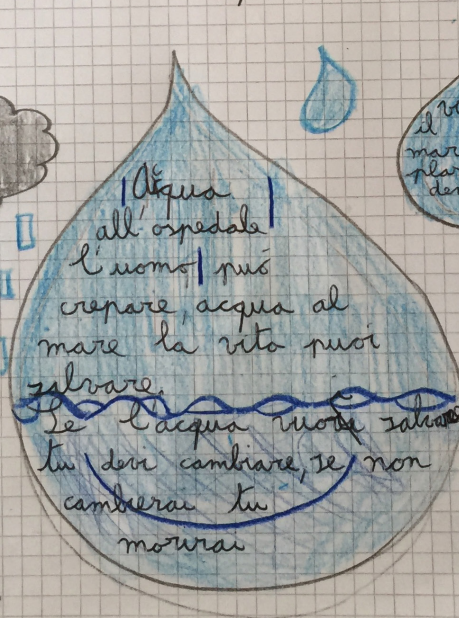 Acqua
all'ospedale
l'uomo può
crepare, acqua al
mare la vita puoi
salvare.
Se l'acqua vuoi salvare
tu devi cambiare, se non
cambierai tu
morirai
il
mar